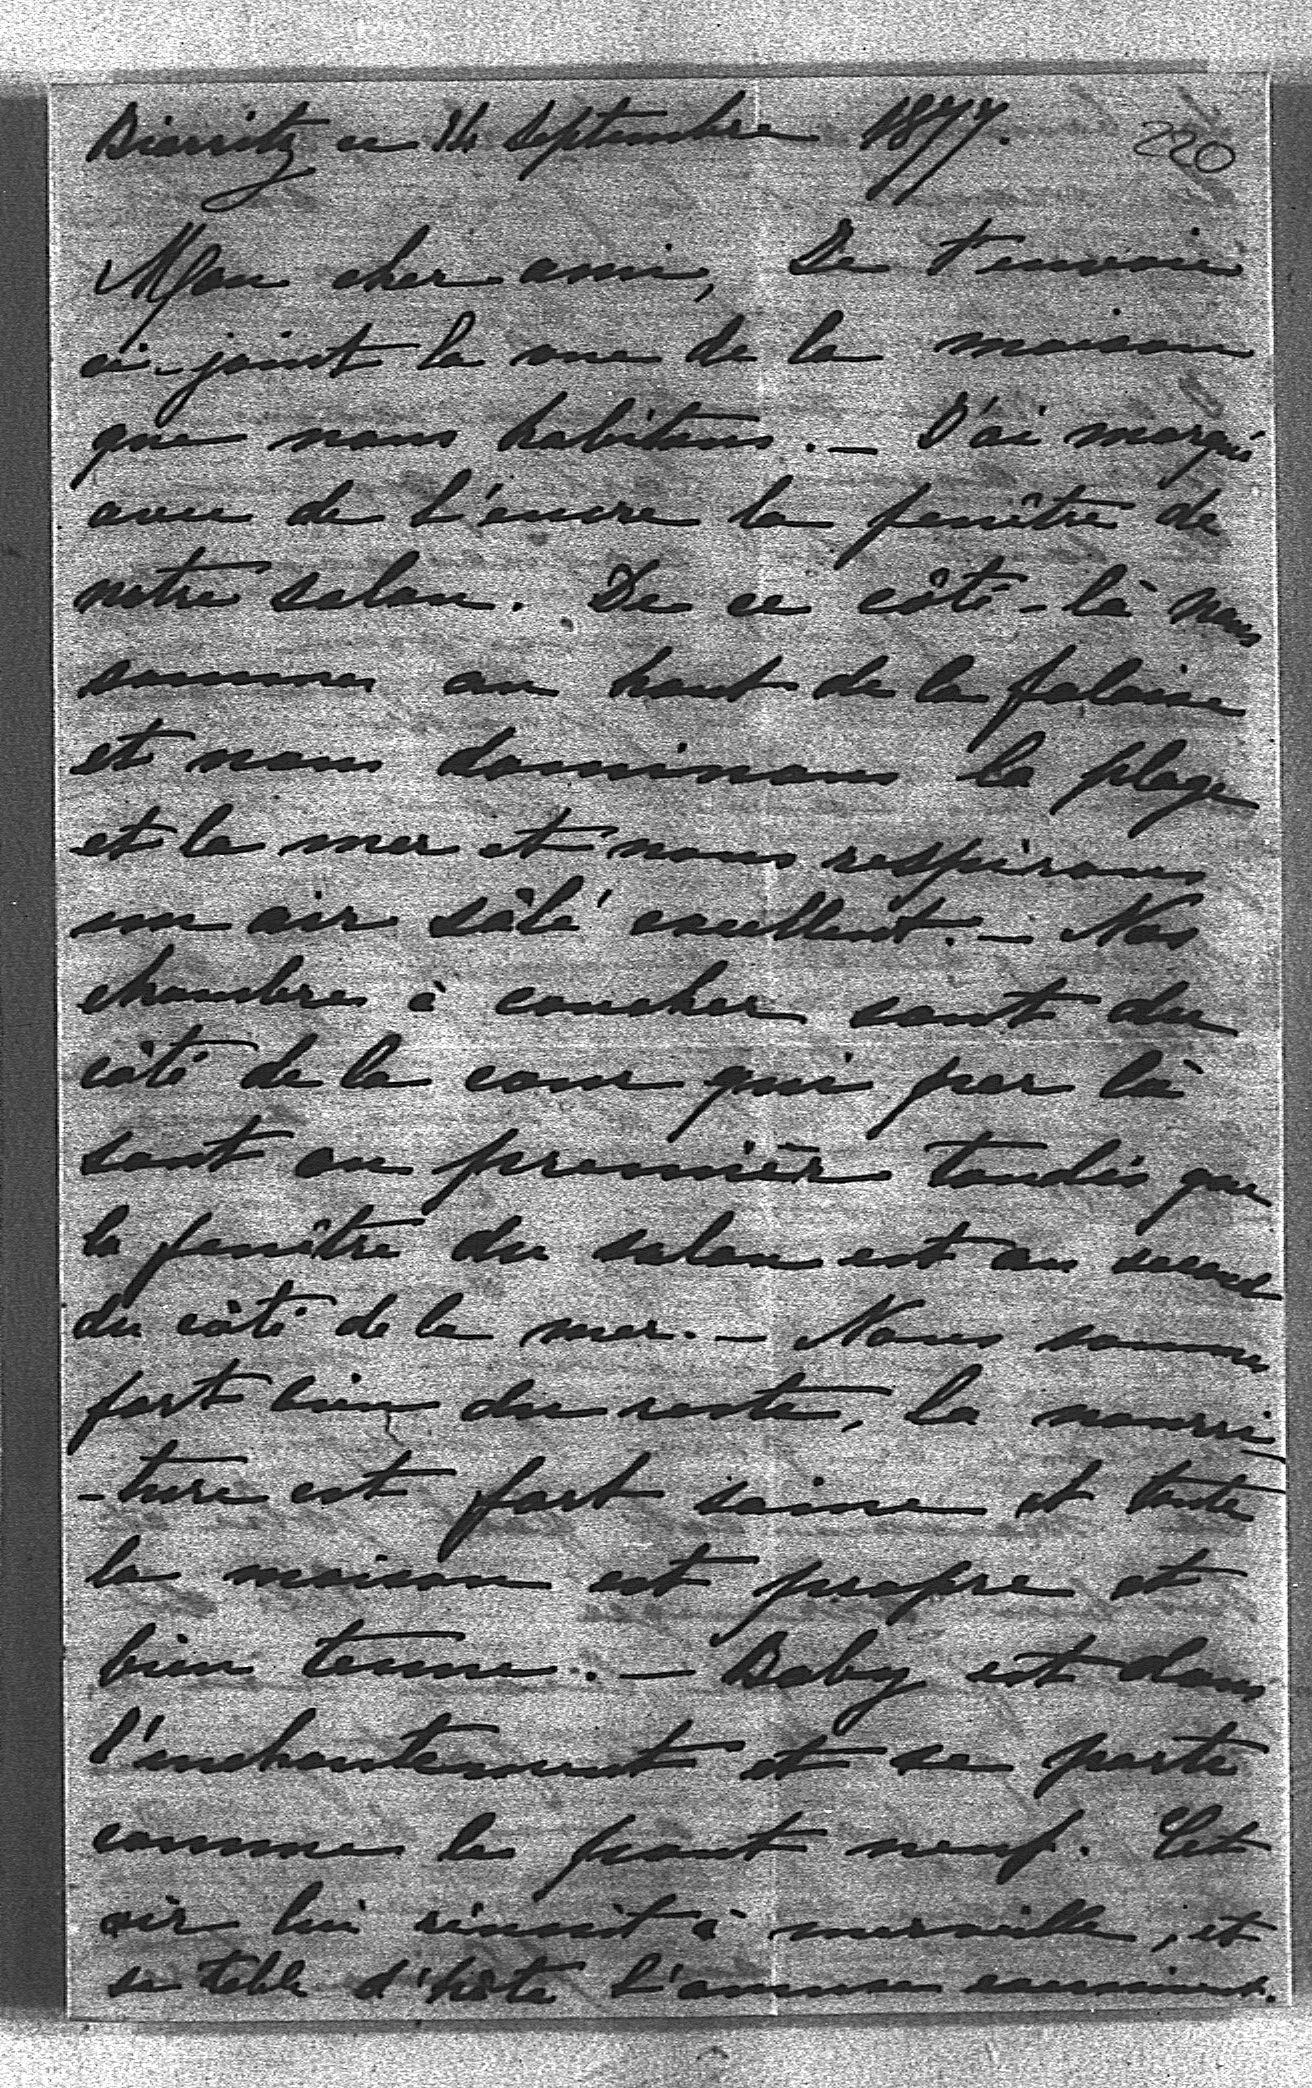 Biarritz ce 14 Septembre 1877.
220
Mon cher ami, Je t'envoie
ci-joint la vue de la maison
que nous habitons. — J'ai marqué
avec de l'encre la fenêtre de
notre salon. De ce côté-là nous
sommes au haut de la falaise
et nous dominons la plage
et la mer et nous respirons
un air sâlé excellent. — Nos
chambres à coucher sont du
côté de la cour qui par là
sont au premièr tandis que
la fenêtre du salon est au second
du côté de la mer. — Nous sommes
fort bien du reste, la nourri-
-ture est fort saine et toute
la maison est propre et
bien tenue. — Baby est dans
l'enchantement et se porte
comme le pont neuf. Cet
air lui réussit à merveille, et
la table d'hôte l'amuse